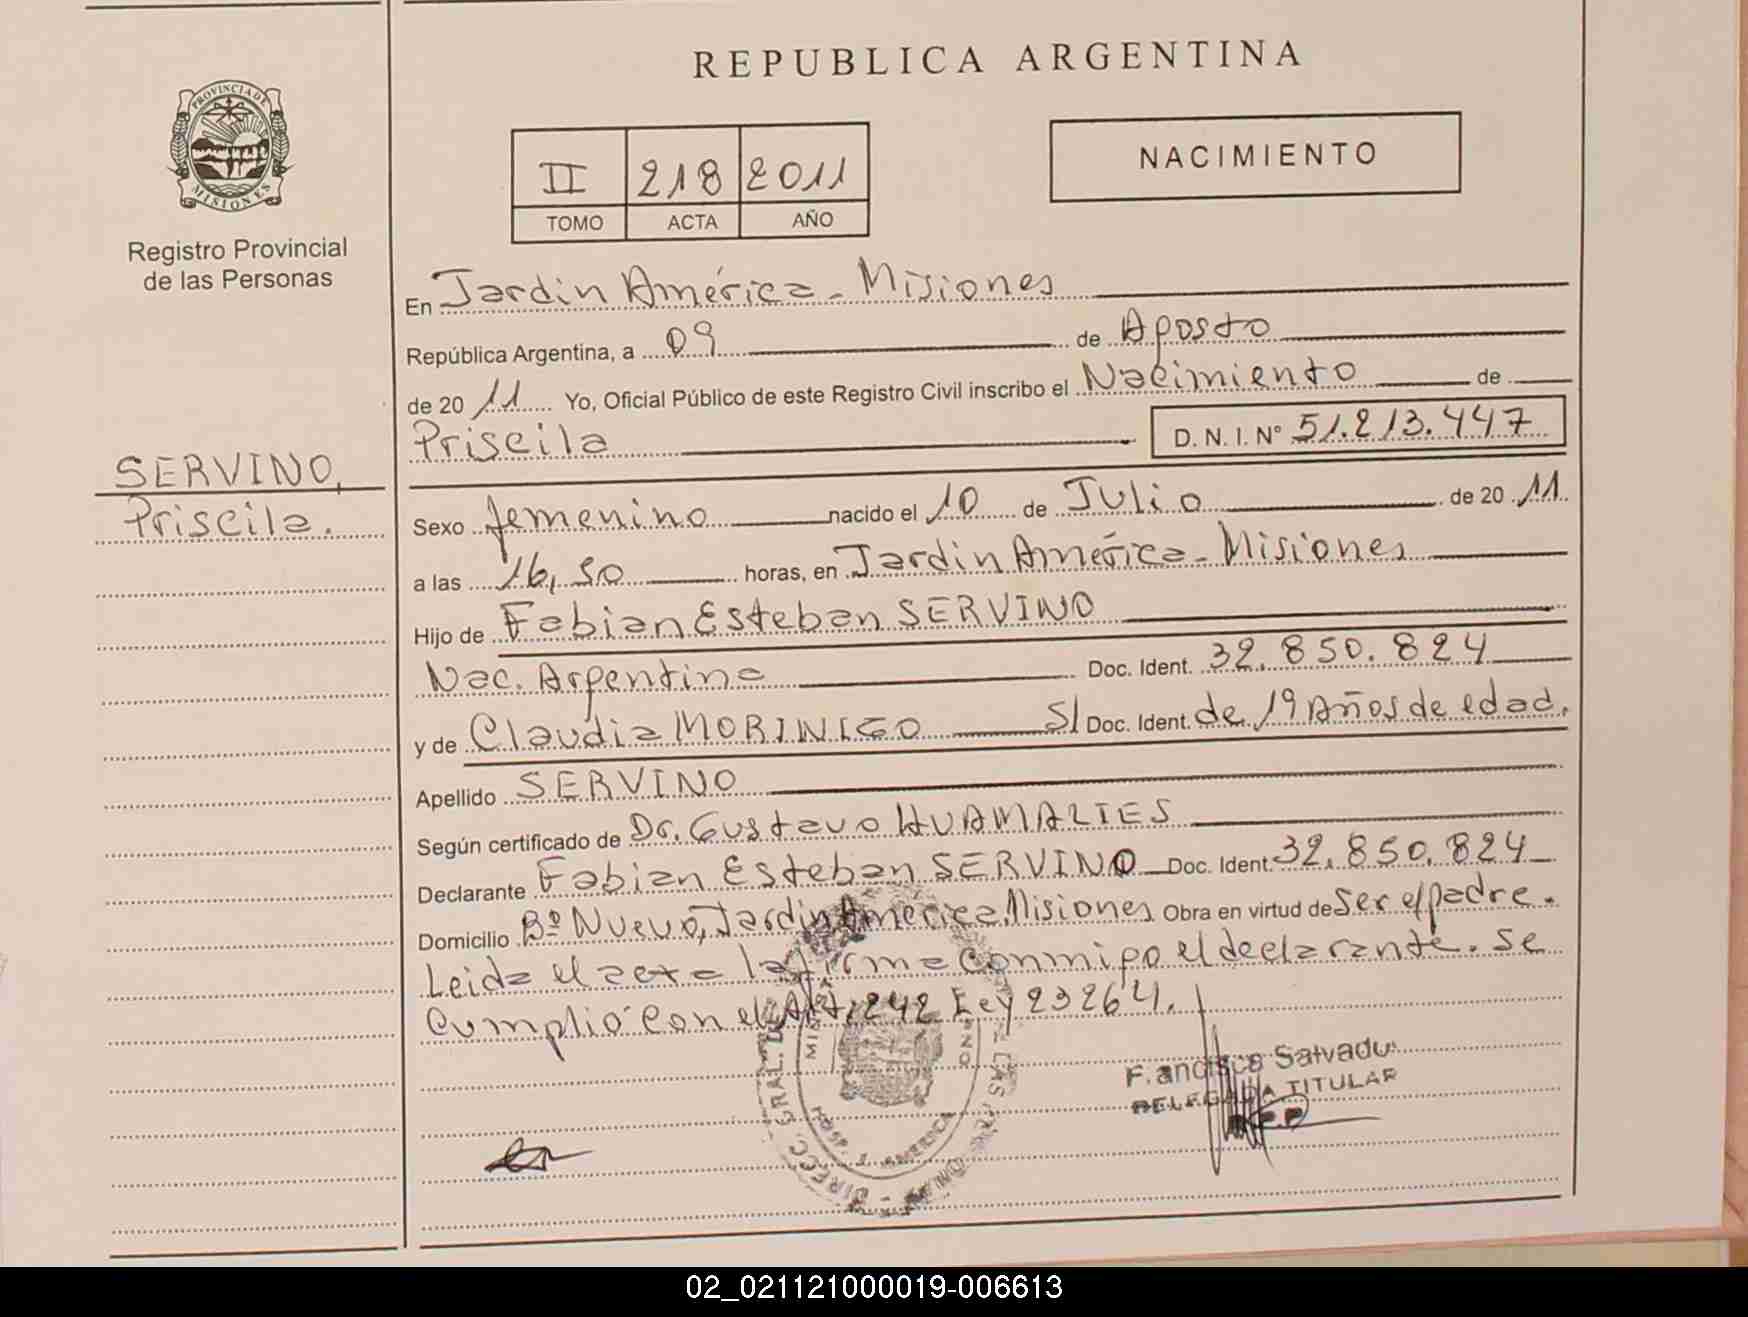 REPUBLICA ARGENTINA
PROVINCIA DE
MISIONES
Registro Provincial
de las Personas
II 218 2011
TOMO ACTA AÑO
NACIMIENTO
En Jardin América - Misiones
República Argentina, a 09 de Agosto
de 20 11 Yo, Oficial Público de este Registro Civil inscribo el Nacimiento de
Priscila D. N. I. N° 51.213.447
SERVINO,
Priscila.
Sexo femenino nacido el 10 de Julio de 20 11.
a las 16,50 horas, en Jardin América - Misiones
Hijo de Fabian Esteban SERVINO
Nac. Argentina Doc. Ident. 32.850.824
y de Claudia MORINIGO S/ Doc. Ident. de 19 Años de edad.
Apellido SERVINO
Según certificado de Dr. Gustavo HUAMALIES
Declarante Fabian Esteban SERVINO Doc. Ident. 32.850.824
Domicilio Bº Nuevo, Jardin América, Misiones Obra en virtud de Ser el padre.
Leida el acta la firma conmigo el declarante. Se
Cumplió con el Art. 242 Ley 23264.
Francisca Salvadu
DELEGADA TITULAR
R.P.P
DIRECC. GRAL. DE LAS
HOSP. J. AMERICA
02_021121000019-006613